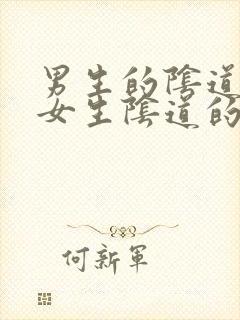 男生的陰道
女生陰道的
何新軍